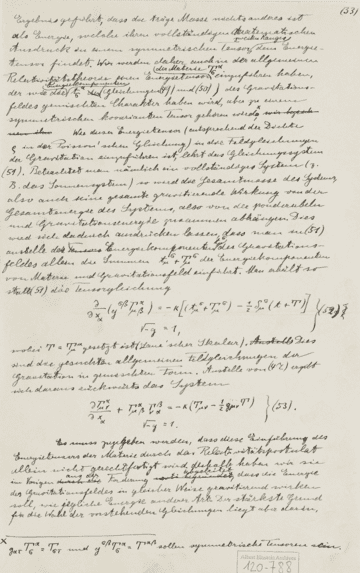 (33)
Ergebnis geführt, dass die träge Masse nichts anderes ist
als Energie, welche ihren vollständigen mathematischen
Ausdruck in einem symmetrischen Tensor, dem Energie-
tensor findet. Wir werden daher auch in der allgemeinen
Relativitätstheorie einen Energietensor der Materie T einführen haben,
der wie die Energiekomponenten t (Gleichungen (49) und (50)) des Gravitations-
feldes gemischten Charakter haben wird, aber zu einem
symmetrischen kovarianten Tensor gehören wird x
Wie dieser Energietensor (entsprechend der Dichte
ρ in der Poisson'schen Gleichung) in die Feldgleichungen
der Gravitation einzuführen ist, lehrt das Gleichungssystem
(51). Betrachtet man nämlich ein vollständiges System (z.
B. das Sonnensystem) so wird die Gesamtmasse des Systems
also auch seine gesamte gravitierende Wirkung von der
Gesamtenergie des Systems, also von der ponderabeln
und Gravitationsenergie zusammen abhängen. Dies
wird sich dadurch ausdrücken lassen, dass man in (51)
anstelle der Energiekomponenten des Gravitations-
feldes allein die Summen t_μ^σ + T_μ^σ der Energiekomponenten
von Materie und Gravitationsfeld einführt. Man erhält so
statt (51) die Tensorgleichung
∂/∂x_α (g^σβ Γ^α_μβ) = −κ[(t_μ^σ + T_μ^σ) − ½ δ_μ^σ (t + T)]
√−g = 1, } (52)
wobei T = T_μ^μ gesetzt ist (Laue'scher Skalar). Dies
sind die gesuchten allgemeinen Feldgleichungen der
Gravitation in gemischter Form. Anstelle von (47) ergibt
sich daraus rückwärts das System
∂Γ^α_μν/∂x_α + Γ^α_μβ Γ^β_να = −κ(T_μν − ½ g_μν T)
√−g = 1. } (53).
Es muss zugegeben werden, dass diese Einführung des
Energietensors der Materie durch das Relativitätspostulat
allein nicht gerechtfertigt wird; deshalb haben wir sie
im Vorigen aus der Forderung abgeleitet, dass die Energie
des Gravitationsfeldes in gleicher Weise gravitierend wirken
soll, wie jegliche Energie anderer Art. Der stärkste Grund
für die Wahl der vorstehenden Gleichungen liegt aber darin,
x g_ατ T_σ^α = T_στ und g^σβ T_σ^α = T^αβ sollen symmetrische Tensoren sein.
Albert Einstein Archives
120-788